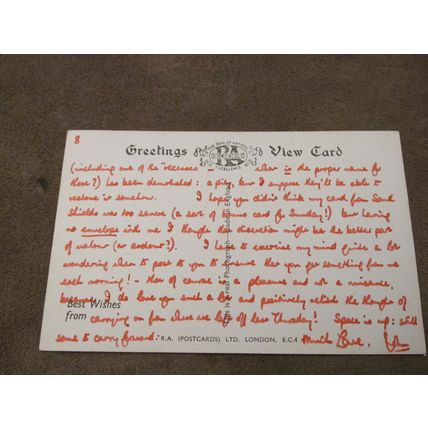 8
Greetings View Card
THE SEAL OF ARTISTIC EXCELLENCE
RA
(including one of the "recesses" - what is the proper name for
those?) has been demolished: a pity, but I suppose they'll be able to
restore it somehow. I hope you didn't think my card from South
Shields was too severe (a sort of bonus card for Sunday!) but having
no envelope with me I thought that discretion might be the better part
of valour (or ardour?). I have to exercise my mind quite a lot
wondering when to post to you to ensure that you get something from me
each morning! - that of course is a pleasure and not a nuisance
because I do love you such a lot and positively relish the thought of
carrying on from where we left off last Thursday! Space is up: still
some to carry forward. Much love,
Best Wishes
from
This is a real Photograph Made in England
R.A. (POSTCARDS) LTD. LONDON, E.C.4